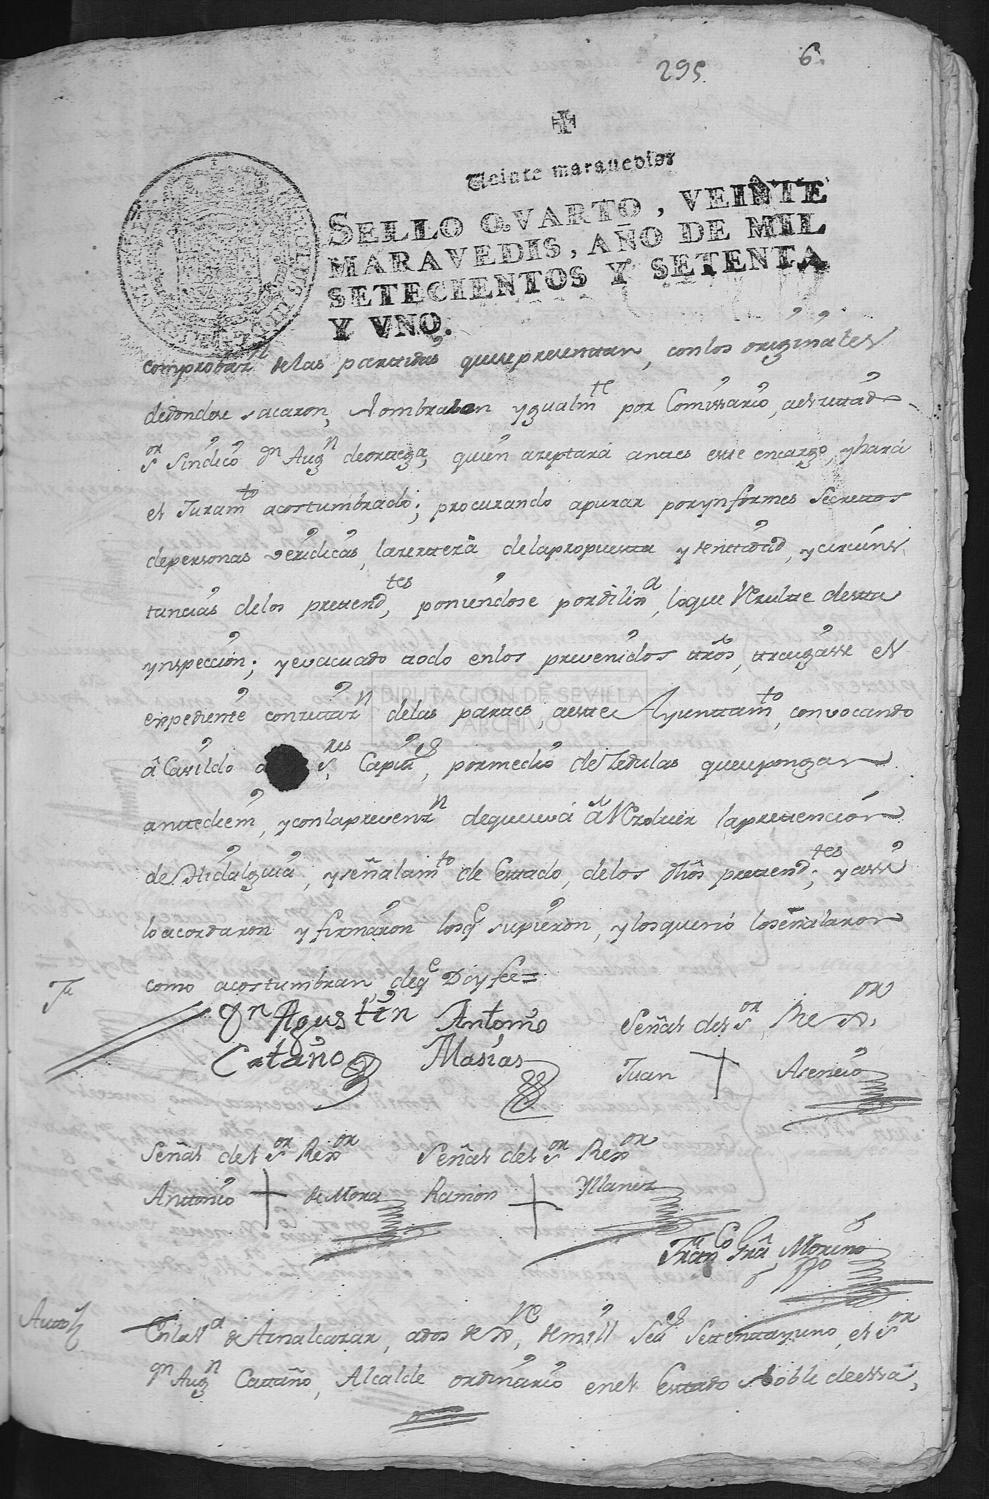 295.
6.
Veinte maravedis
SELLO QVARTO, VEINTE
MARAVEDIS, AÑO DE MIL
SETECIENTOS Y SETENTA
Y VNO.
comprobazn de las partidas que se presentan, con los originales
de donde se sacaron, Nombraron ygualmte por Comissario, a este
sor Sindico Dn Augn de ortega, quien aceptará antes este encargo, y hará
el Juramto acostumbrado; procurando apurar por ynformes Secretos
de personas veridicas, la certeza de la propuesta y ydentidad, y circuns-
tancias de los pretendtes, poniendose por dilixa, lo que Resulte de esta
ynspeccion; y evacuado todo en los prevenidos attos, traigasse el
expediente con citazn de las partes, a este Ayuntamto, convocando
â Cavildo a sres Capitres, por medio de Zedulas que se pongan
antediem, y con la prevenzn de que se vâ â Resolver la pretencion
de Hidalguia, y señalamto de Estado, de los dhos pretendtes; y assi
lo acordaron y firmaron los q supieron, y los que no lo señalaron
como acostumbran de q Doy fee=
Dn Agustin Antonio Señal del sor Rexor
Cataño Masias Juan Asencio
Señal del sor Rexor Señal del sor Rexor
Antonio de Mora Ramon Yllanez
Franco Gra Moreno
Auto
En la Va de Aznalcazar, a dos de Nre, de mill Setezs Setenta y uno, el sor
Dn Augn Cataño, Alcalde ordinario en el Estado Noble de esta,
DIPUTACIÓN DE SEVILLA
ARCHIVO